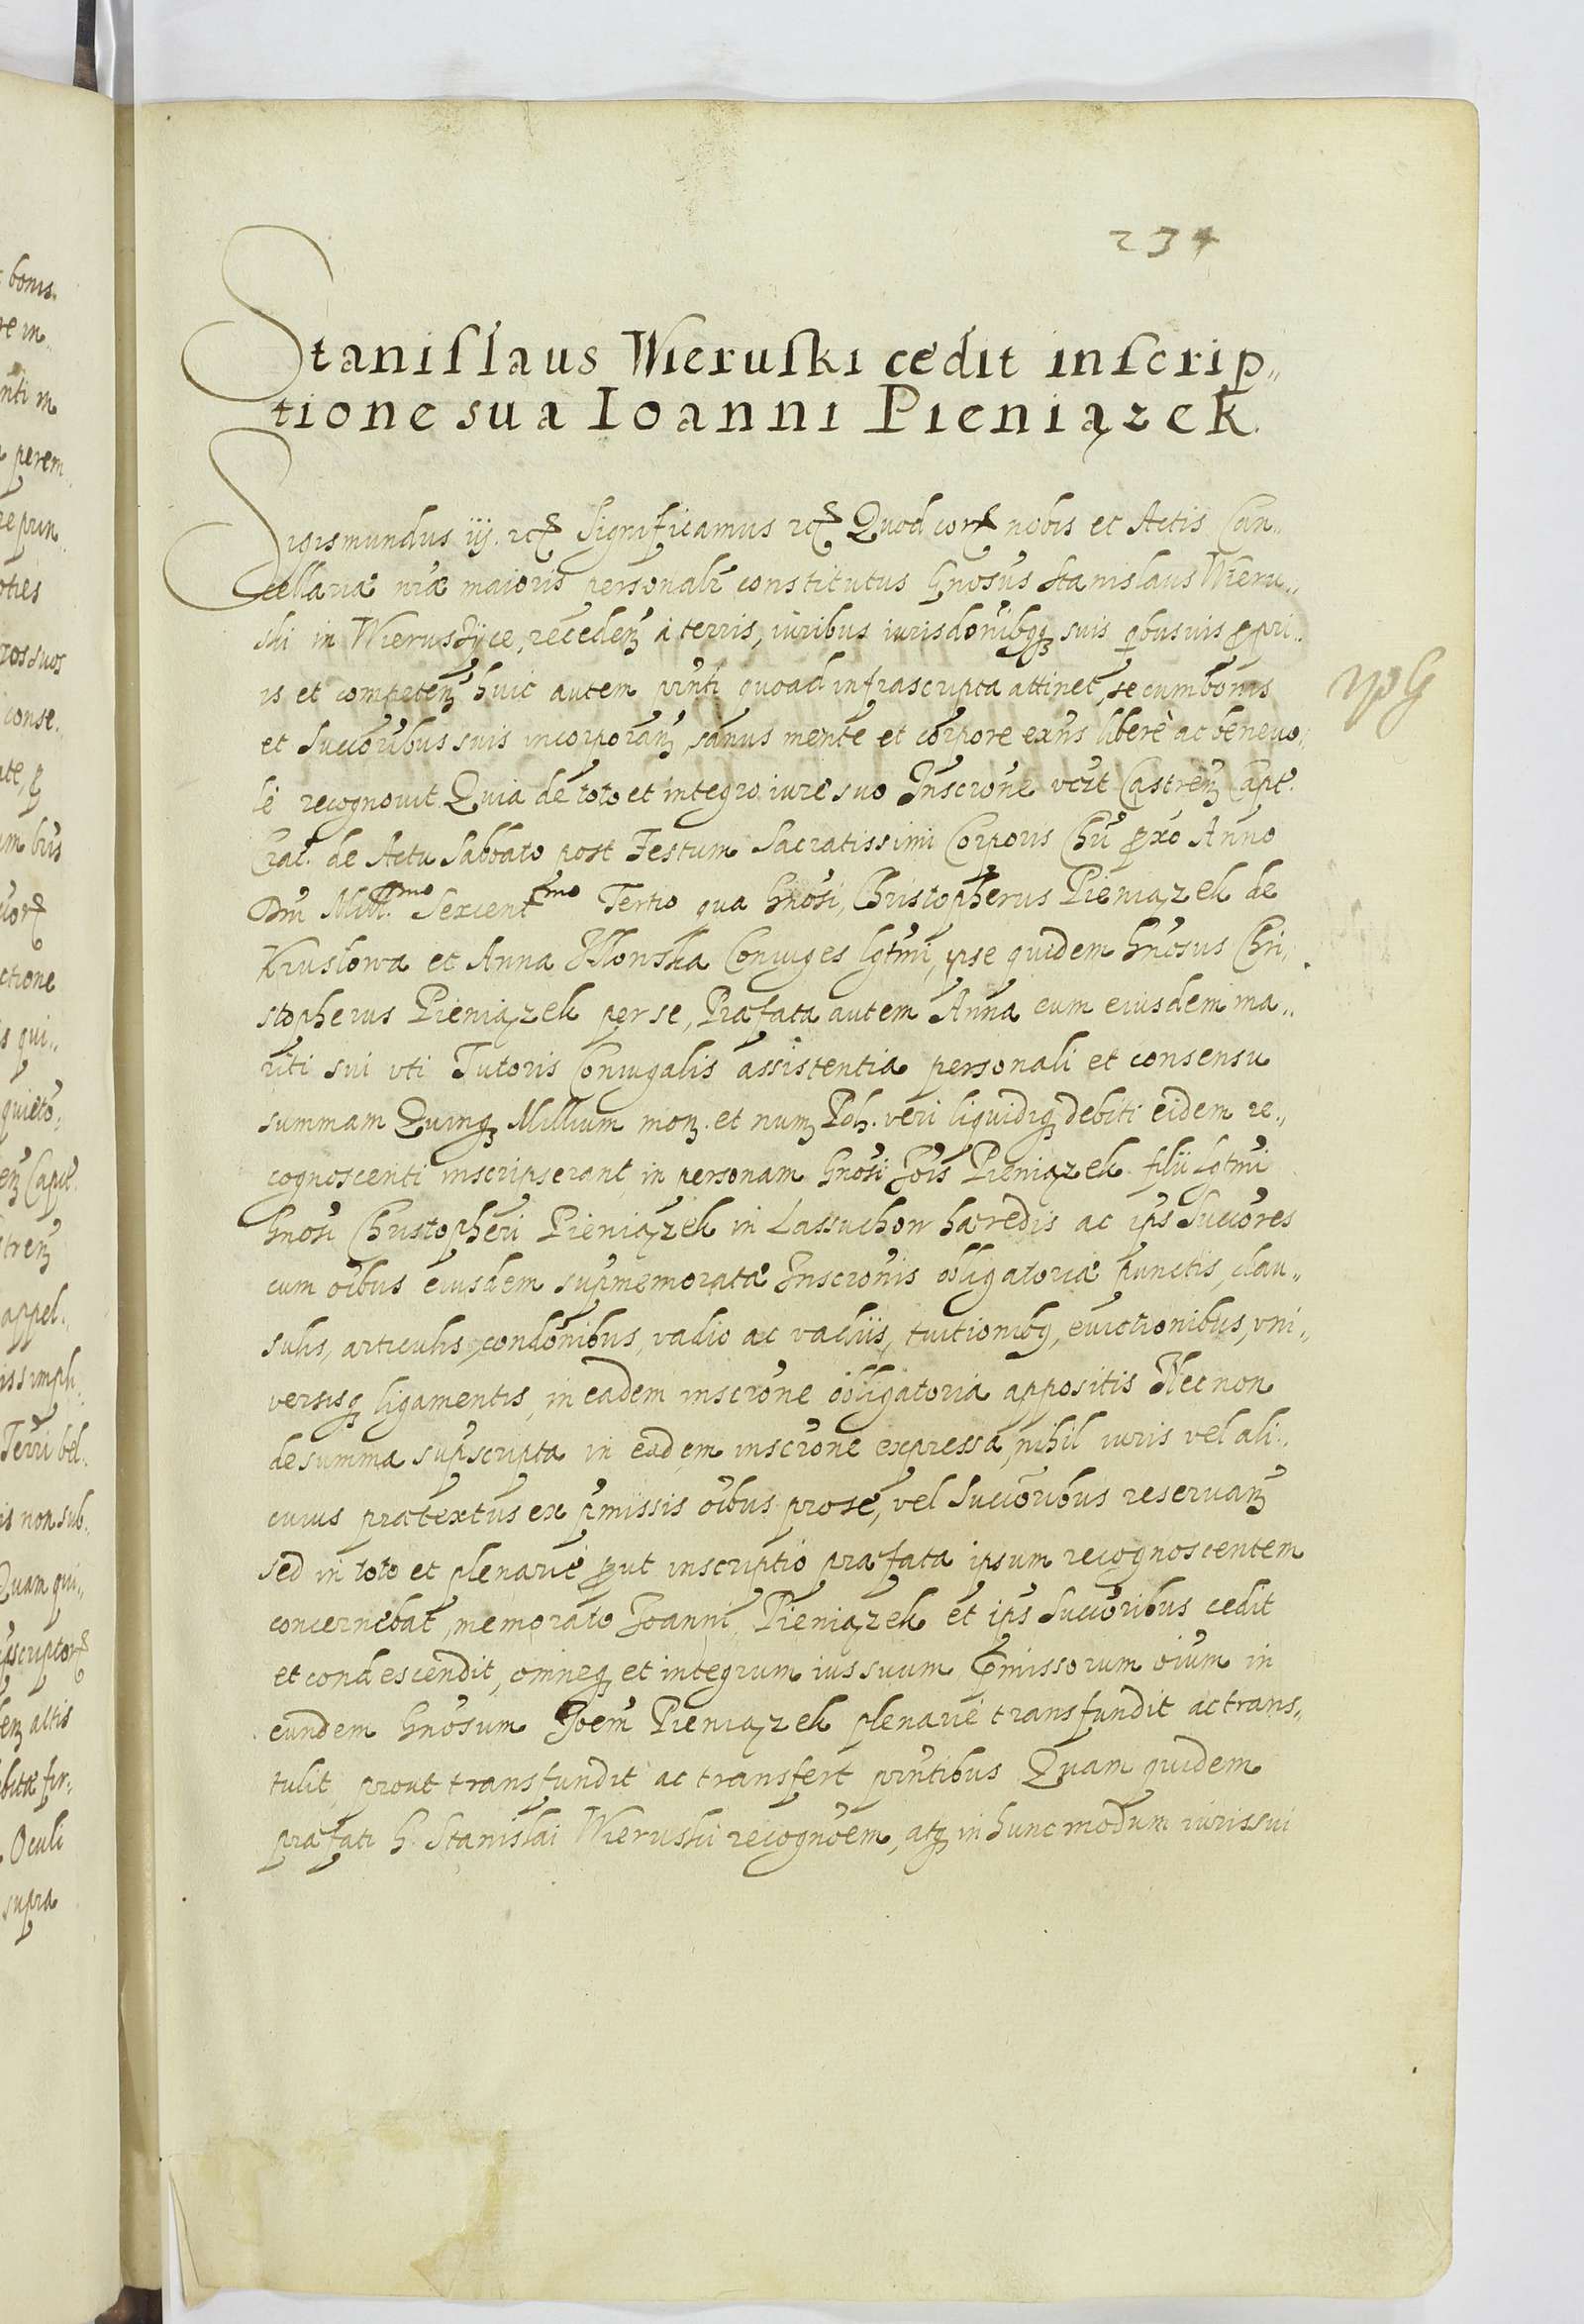 234
Stanislaus Wieruski cedit inscrip„
tione sua Ioanni Pieniązek.
Sigismundus iij. etc. Significamus etc. Quod cor. nobis et Actis Can„
cellariæ nræ maioris personalr constitutus Gnosus Stanislaus Wieru„
ski in recedenz á terris, iuribus iurisdonibqz suis qbusuis ppri„
is et competenz huic autem pnti quoad infrascripta attinet, se cum bonis
et Succoribus suis incorporanz, sanus mente et corpore exns liberè ac beneuo„
lè recognouit Quia de toto et integro iure suo Inscrone vert Castrenz Capt.
Crac. de Actu Sabbato post Festum Sacratissimi Corporis Chri pxo Anno
Dni Mill.mo Sexcentmo Tertio qua Gnosi, Christopherus Pieniązek de
Kruslowa et Anna Coniuges lgtmi, ipse quidem Gnosus Chri„
stopherus Pieniązek per se, Præfata autem Anna cum eiusdem ma„
riti sui vti Tutoris Coniugalis assistentia personali et consensu
summam Quinqz Millium monz. et numz Pol. veri liquidiqz debiti eidem re„
cognoscenti inscripserant, in personam Gnosi Jois Pieniązek filii lgtmi
Gnosi Christopheri Pieniązek in Lassuchow hæredis ac ips Succores
cum oibus eiusdem supmemoratæ Inscronis obligatoriæ punctis, clau„
sulis, articulis, condonibus, vadio ac vadiis, tuitionibq, euictionibus, vni„
versisqz ligamentis, in eadem inscrone obligatoria appositis Necnon
de summa supscripta in eadem inscrone expressa, nihil iuris vel ali„
cuius prætextus ex pmissis oibus pro se, vel Succoribus reseruanz
sed in toto et plenarié put inscriptio præfata ipsum recognoscentem
concernebat, memorato Joanni Pieniązek et ips Succoribus cedit
et condescendit, omneqz et integrum ius suum pmissorum oium in
eundem Gnosum Joem Pieniązek plenarié transfundit ac trans„
tulit, prout transfundit ac transfert pntibus Quam quidem
præfati G. Stanislai Wieruski recognoem, atqz in hunc modum iuris sui